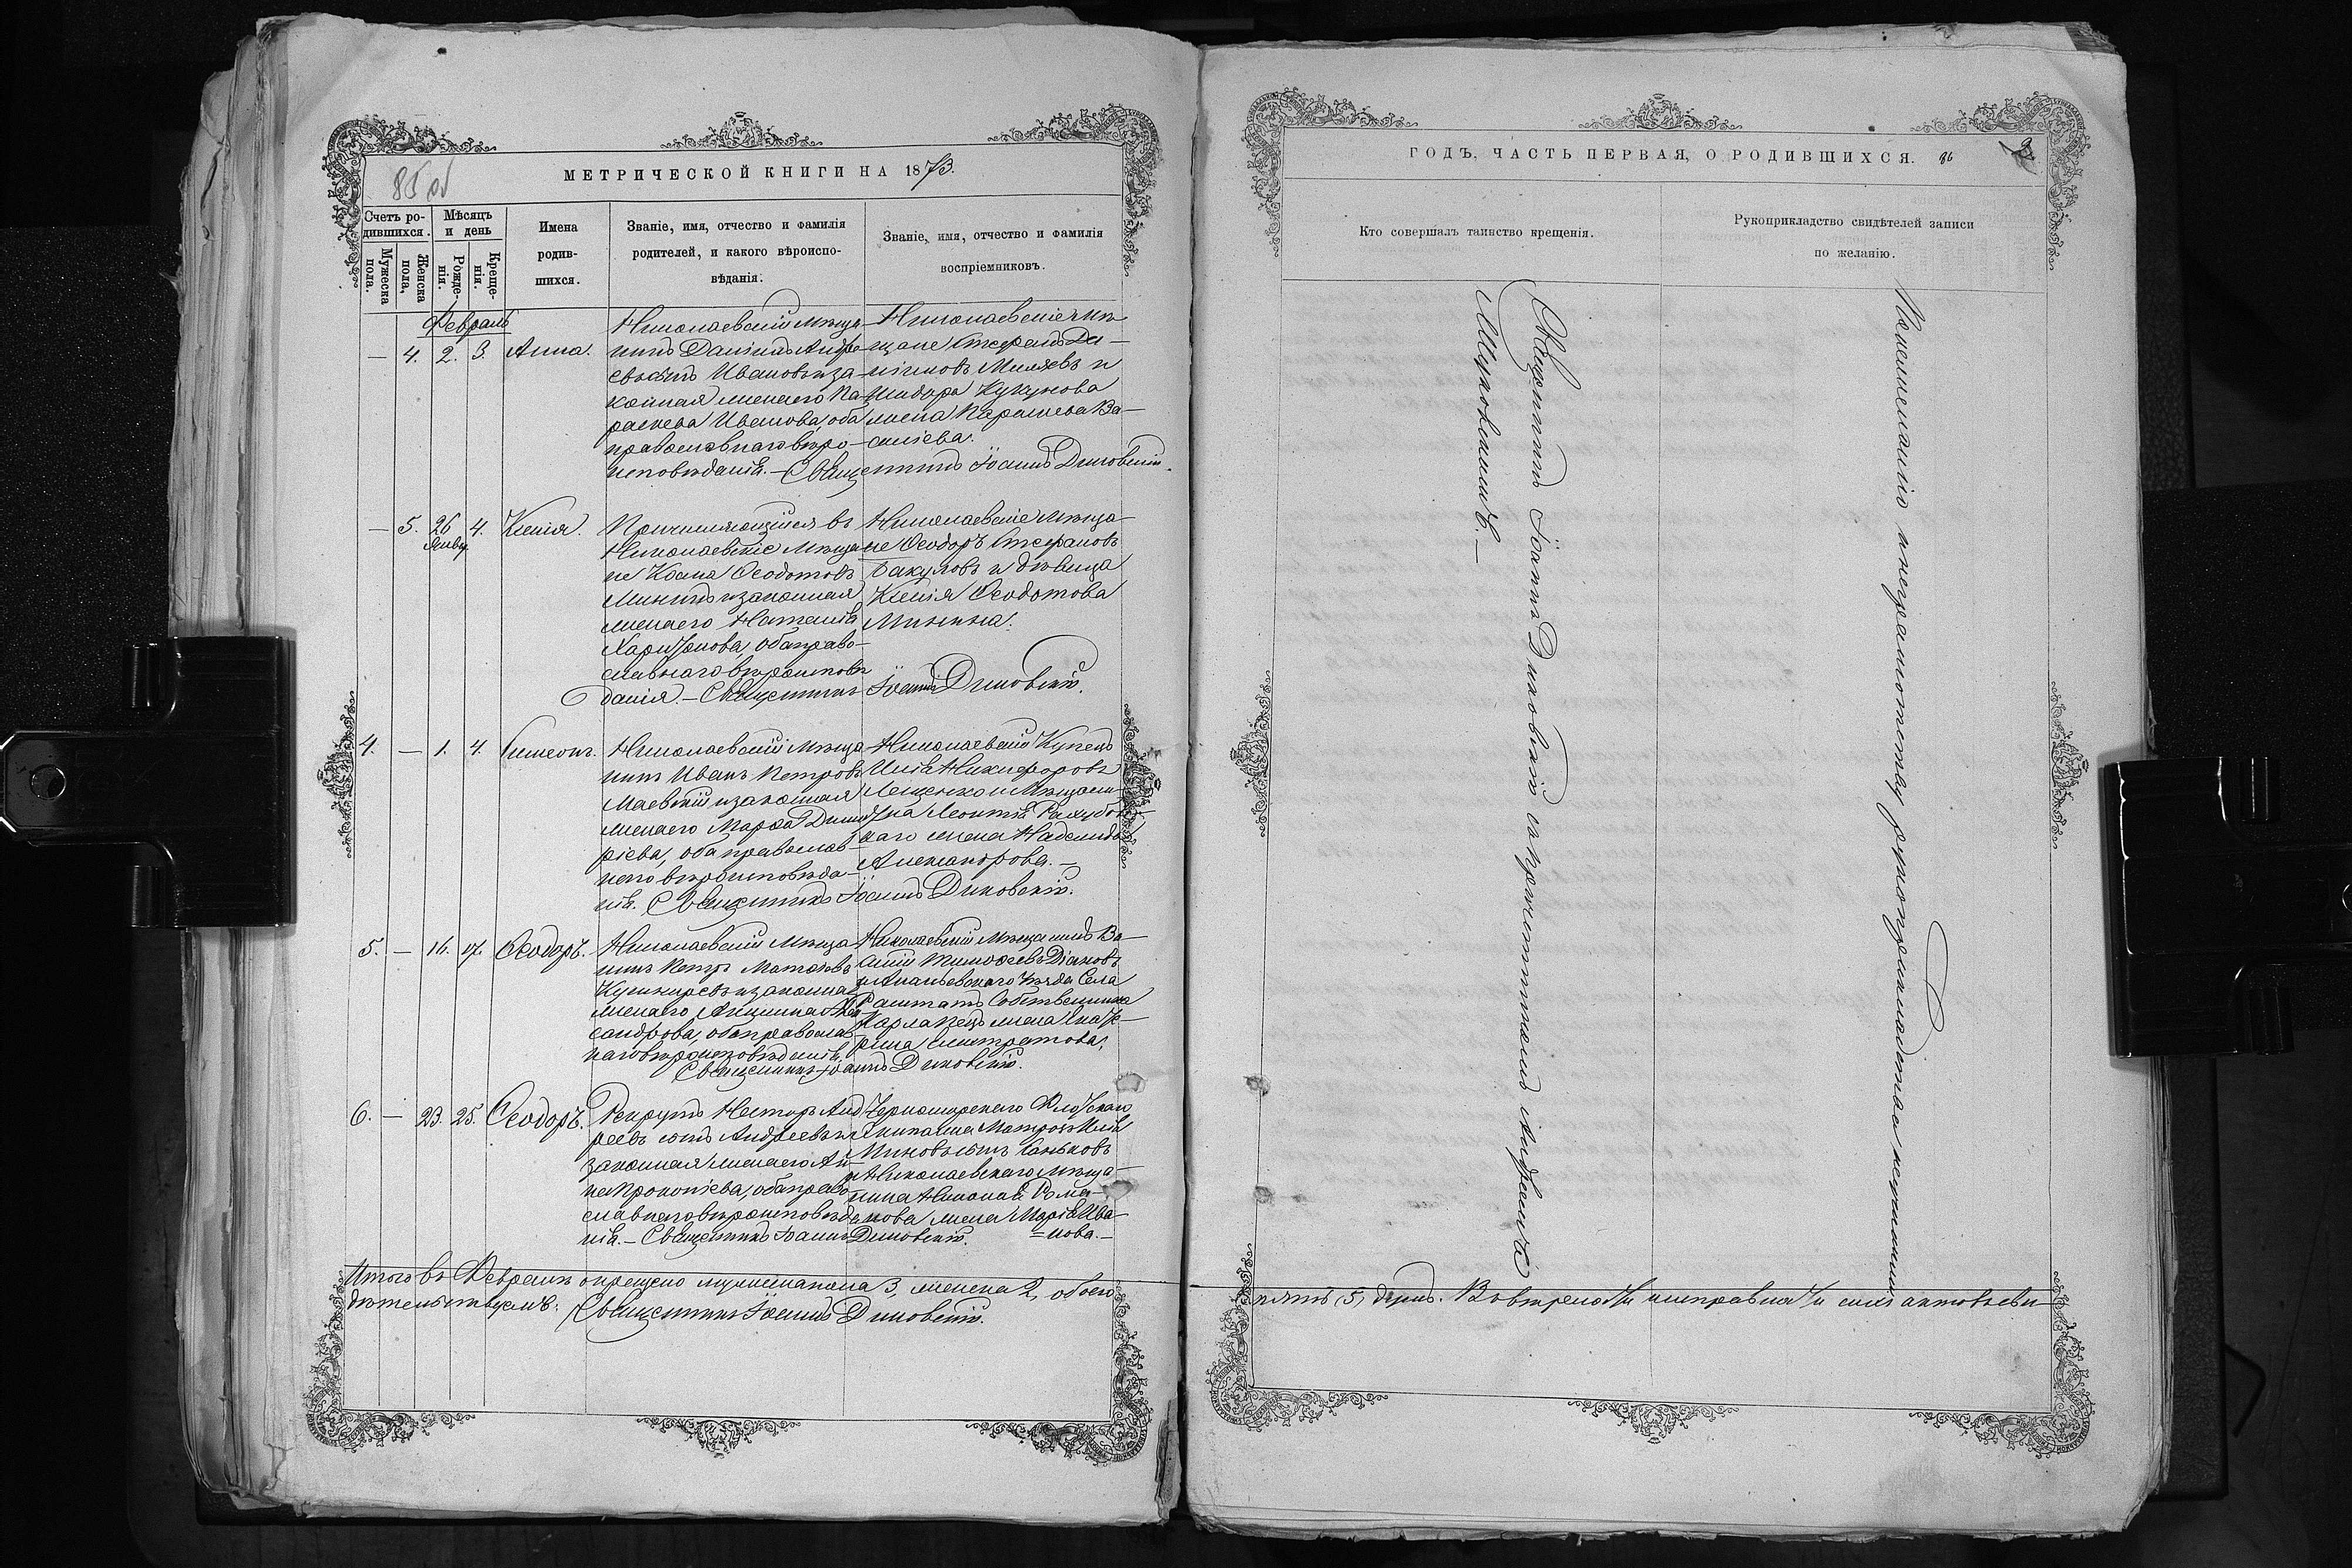 МЕТРИЧЕСКОЙ КНИГИ НА 1873.
85 об
Счетъ родившихся.
Мѣсяцъ и день
Имена родившихся.
Званіе, имя, отчество и фамилія родителей, и какого вѣроисповѣданія.
Званіе, имя, отчество и фамилія воспріемниковъ.
Мужеска пола.
Женска пола,
Рожденія.
Крещенія.
Февраль
— 4. 2. 3. Анна.
Николаевскій мѣща-
нинъ Даніилъ Андре-
евъ сынъ Ивановъ и за-
конная жена его Па-
раскева Иванова, оба
православнаго вѣро-
исповѣданія. — Священникъ Іоаннъ Диковскій.
Николаевскіе мѣ-
щане Стефанъ Да-
ніиловъ и
Кукунова
жена Парашева Ва-
силіева.
— 5. 26 Янвр. 4. Ксенія.
Причисляющійся въ
Николаевскіе мѣща-
не Ѳеодотовъ
Мининъ и законная
жена его Наталія
Харитонова, оба право-
славнаго вѣроисповѣ
данія. — Священникъ Іоаннъ Диковскій.
Николаевскіе мѣща-
не Ѳеодоръ Стефановъ
Бакуловъ и дѣвица
Ксенія Ѳеодотова
Минина.
4. — 1. 4. Симеонъ.
Николаевскій мѣща
нинъ Иванъ Петровъ
Маевскій и законная
жена его Марѳа Димит
ріева, оба православ-
наго вѣроисповѣда-
нія. Священникъ Іоаннъ Диковскій.
Николаевскій Купецъ
Илія Никифоровъ
Лещенко и мѣщани-
на Леонтія
каго жена Надежда
Александрова. —
5. — 16. 17. Ѳеодоръ.
Николаевскій мѣща
нинъ Петръ Матѳеевъ
и законная
жена его Акилина Алек
сандрова, оба православ
наго вѣроисповѣданія,
Священникъ Іоаннъ Диковскій.
Николаевскій мѣщанинъ Ва-
силій Тимоѳеевъ Діаковъ
и Ананьевскаго уѣзда Села
Раштатъ Собственника
Карла Пецъ жена Екате-
рина
6. — 23. 25. Ѳеодоръ.
Рекрутъ Несторъ Анд
реевъ сынъ Андреевъ и
законная жена его Ан-
на Прокопіева, оба право
славнаго вѣроисповѣда
нія. — Священникъ Іоаннъ Диковскій.
Черноморскаго Флотскаго
Экипажа Матросъ Илія
сынъ Саньковъ
и Николаевскаго мѣща-
нина Николая Рома-
нова жена Марія Ива-
нова. —
Итого въ Февралѣ окрещено мужеска пола 3, женска 2, обоего
дѣтельствуемъ: Священникъ Іоаннъ Диковскій.
ГОДЪ, ЧАСТЬ ПЕРВАЯ, О РОДИВШИХСЯ. 86
Кто совершалъ таинство крещенія.
Рукоприкладство свидѣтелей записи по желанію.
Священникъ Іоаннъ Диковскій съ причетникомъ Андреемъ
По нежеланію и неграмотству рукоприкладства не учинили
пять (5) душъ. Въ вѣрности и исправности сихъ актовъ сви-